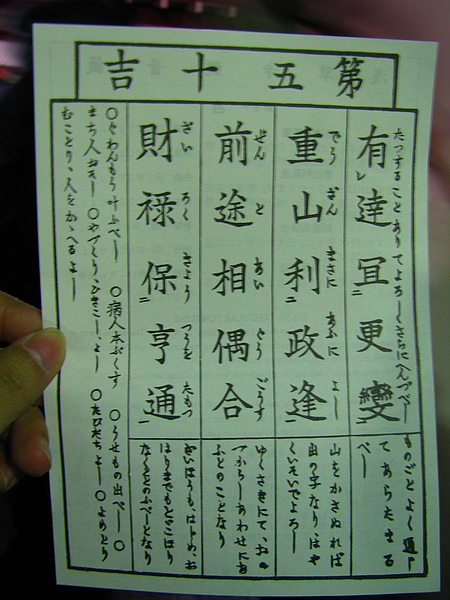 第五十吉
たつすることありてよろしくさらにへんずべし
有レ達冝更變一
ものごとよく通し
てあらたまる
べし
でうざんまさにあふによし
重山利二政逢一
山をかさぬれば
出の字なり、はや
くいそいでよろし
ぜんとあいぐうごうす
前途相偶合
ゆくさきにて、おの
づからしあわせにあ
ふとのことなり
ざいろくきようつうをたもつ
財禄保二亨通一
ざいほうも、はじめ、お
はりまでもとどこほり
なくととのふべしとなり
○ぐわんもう叶ふべし ○病人本ぶくす ○うせもの出べし ○
まち人おそし ○やづくり、ひきこし、よし ○たびだちよし ○よめとり
むことり、人をかゝへるよし